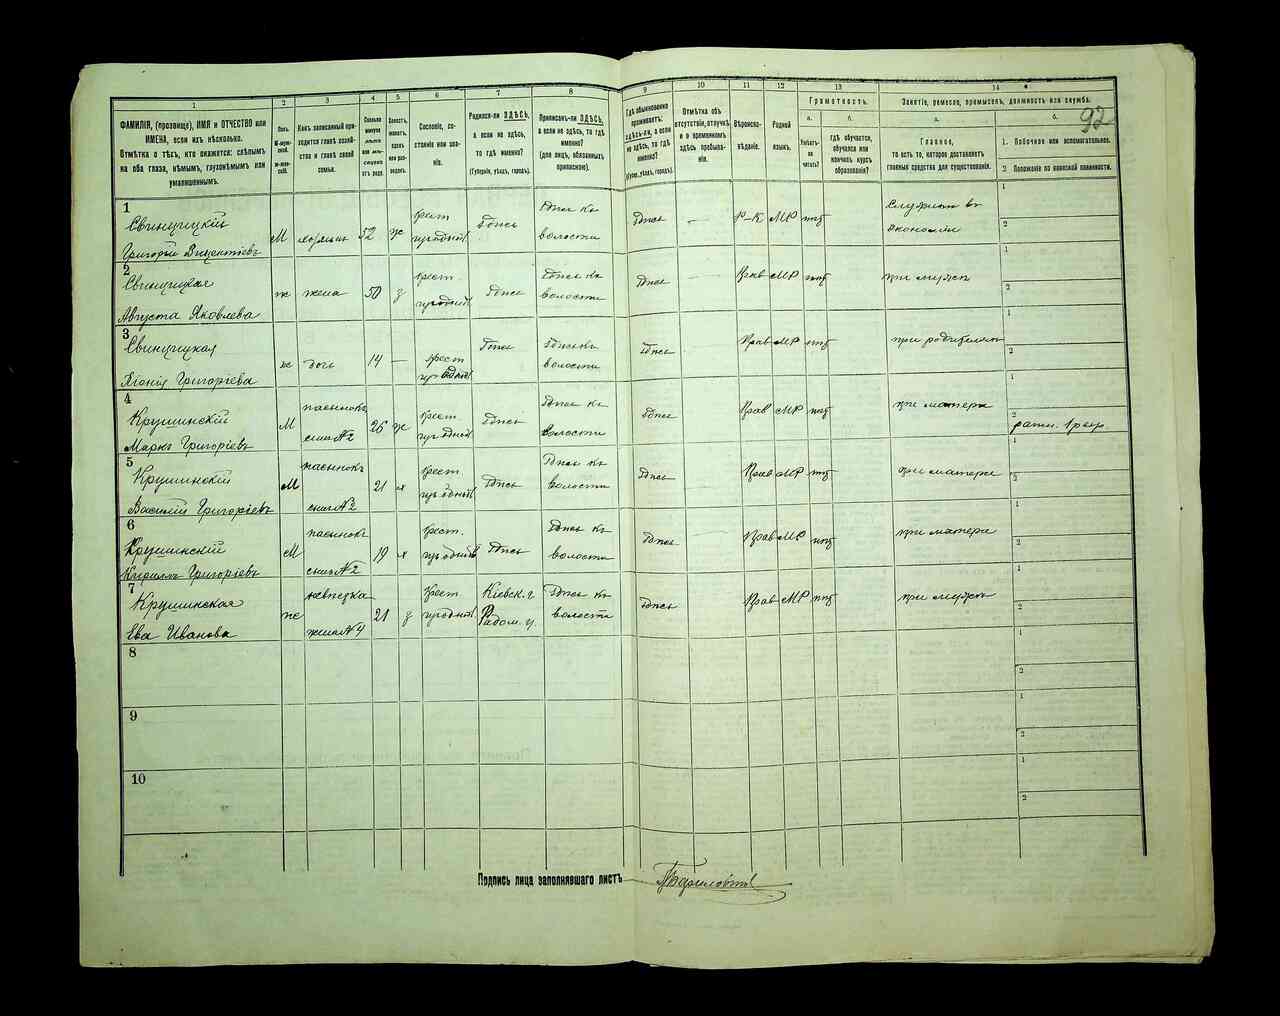 92
1 2 3 4 5 6 7 8 9 10 11 12 13 14
ФАМИЛІЯ, (прозвище), ИМЯ и ОТЧЕСТВО или
ИМЕНА, если ихъ нѣсколько.
Отмѣтка о тѣхъ, кто окажется: слѣпымъ
на оба глаза, нѣмымъ, глухонѣмымъ или
умалишеннымъ.
Полъ.
М-муж-
ской.
Ж-жен-
скій.
Какъ записанный при-
ходится главѣ хозяй-
ства и главѣ своей
семьи.
Сколько
минуло
лѣтъ
или мѣ-
сяцевъ
отъ роду.
Холостъ,
женатъ,
вдовъ
или раз-
веденъ.
Сословіе, со-
стояніе или зва-
ніе.
Родился-ли ЗДѢСЬ,
а если не здѣсь,
то гдѣ именно?
(Губернія, уѣздъ, городъ).
Приписанъ-ли ЗДѢСЬ,
а если не здѣсь, то гдѣ
именно?
(для лицъ, обязанныхъ
припискою).
Гдѣ обыкновенно
проживаетъ:
здѣсь-ли, а если
не здѣсь, то гдѣ
именно?
(Губер., уѣздъ, городъ).
Отмѣтка объ
отсутствіи, отлучкѣ
и о временномъ
здѣсь пребыва-
ніи.
Вѣроиспо-
вѣданіе.
Родной
языкъ.
Грамотность.
а.
Умѣетъ-ли
читать?
б.
гдѣ обучается,
обучался или
кончилъ курсъ
образованія?
Занятіе, ремесло, промыселъ, должность или служба.
а.
Главное,
то есть то, которое доставляетъ
главныя средства для существованія.
б.
1. Побочное или вспомогательное.
2 Положеніе по воинской повинности.
1
Свинцицкій
Григорій Викентіевъ
М хозяинъ 52 ж крест. здѣсь здѣсь къ волости здѣсь — Р-К МР нѣтъ служитъ въ экономіи
1
2
2
Свинцицкая
Августа Яковлева
ж жена 50 з крест. здѣсь здѣсь къ волости здѣсь Прав МР нѣтъ при мужѣ
1
2
3
Свинцицкая
Григоріева
ж дочь 14 — крест. здѣсь здѣсь къ волости здѣсь Прав МР нѣтъ при родителяхъ
1
2
4
Крушинскій
Маркъ Григоріевъ
М пасынокъ сынъ №2 26 ж крест. здѣсь здѣсь къ волости здѣсь Прав МР нѣтъ при матери
1
2
5
Крушинскій
Василій Григоріевъ
М пасынокъ сынъ №2 21 х крест. здѣсь здѣсь къ волости здѣсь Прав МР нѣтъ при матери
1
2
6
Крушинскій
Кириллъ Григоріевъ
М пасынокъ сынъ №2 19 х крест. здѣсь здѣсь къ волости здѣсь Прав МР нѣтъ при матери
1
2
7
Крушинская
Ева Иванова
ж невѣстка жена №4 21 з крест. Кіевск. г. Радом. у. здѣсь къ волости здѣсь Прав МР нѣтъ при мужѣ
1
2
8
1
2
9
1
2
10
1
2
Подпись лица заполнявшаго листъ